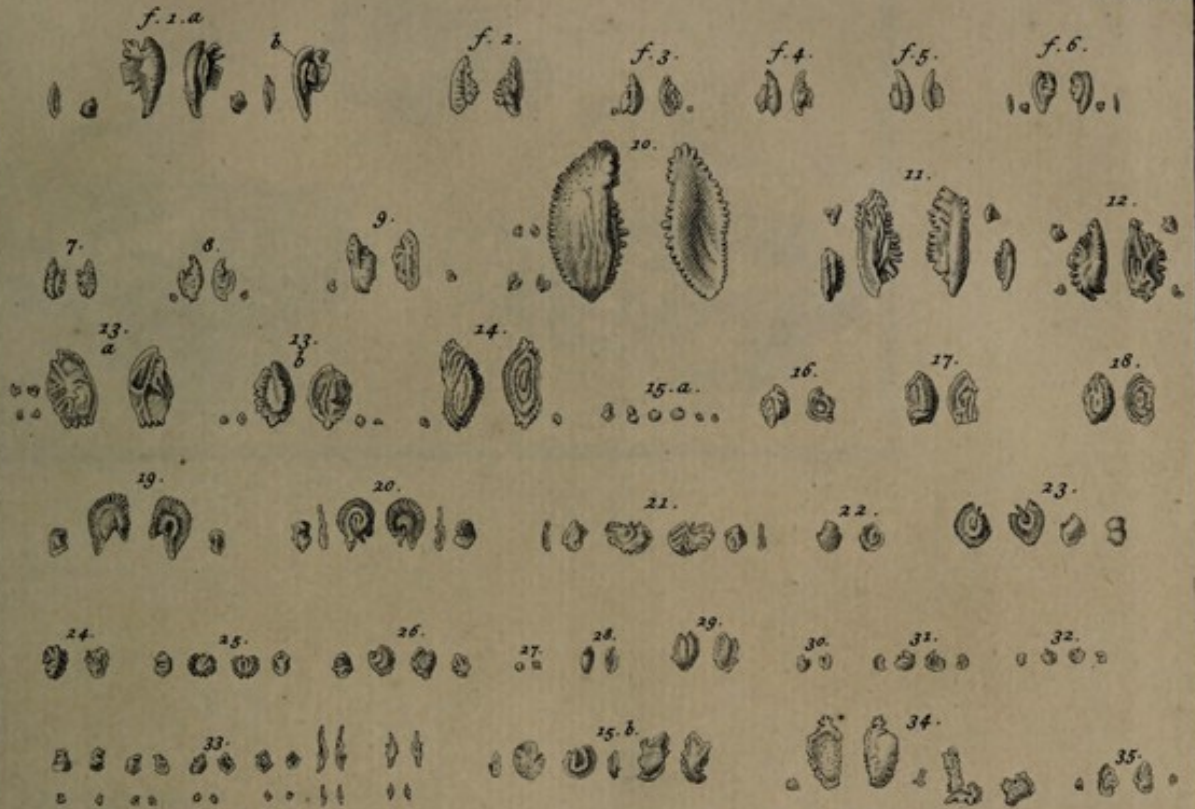 f. 1. a
b
f. 2.
f. 3.
f. 4.
f. 5.
f. 6.
7.
8.
9.
10.
11.
12.
13. a
13. b
14.
15. a.
16.
17.
18.
19.
20.
21.
22.
23.
24.
25.
26.
27.
28.
29.
30.
31.
32.
33.
15. b.
34.
35.